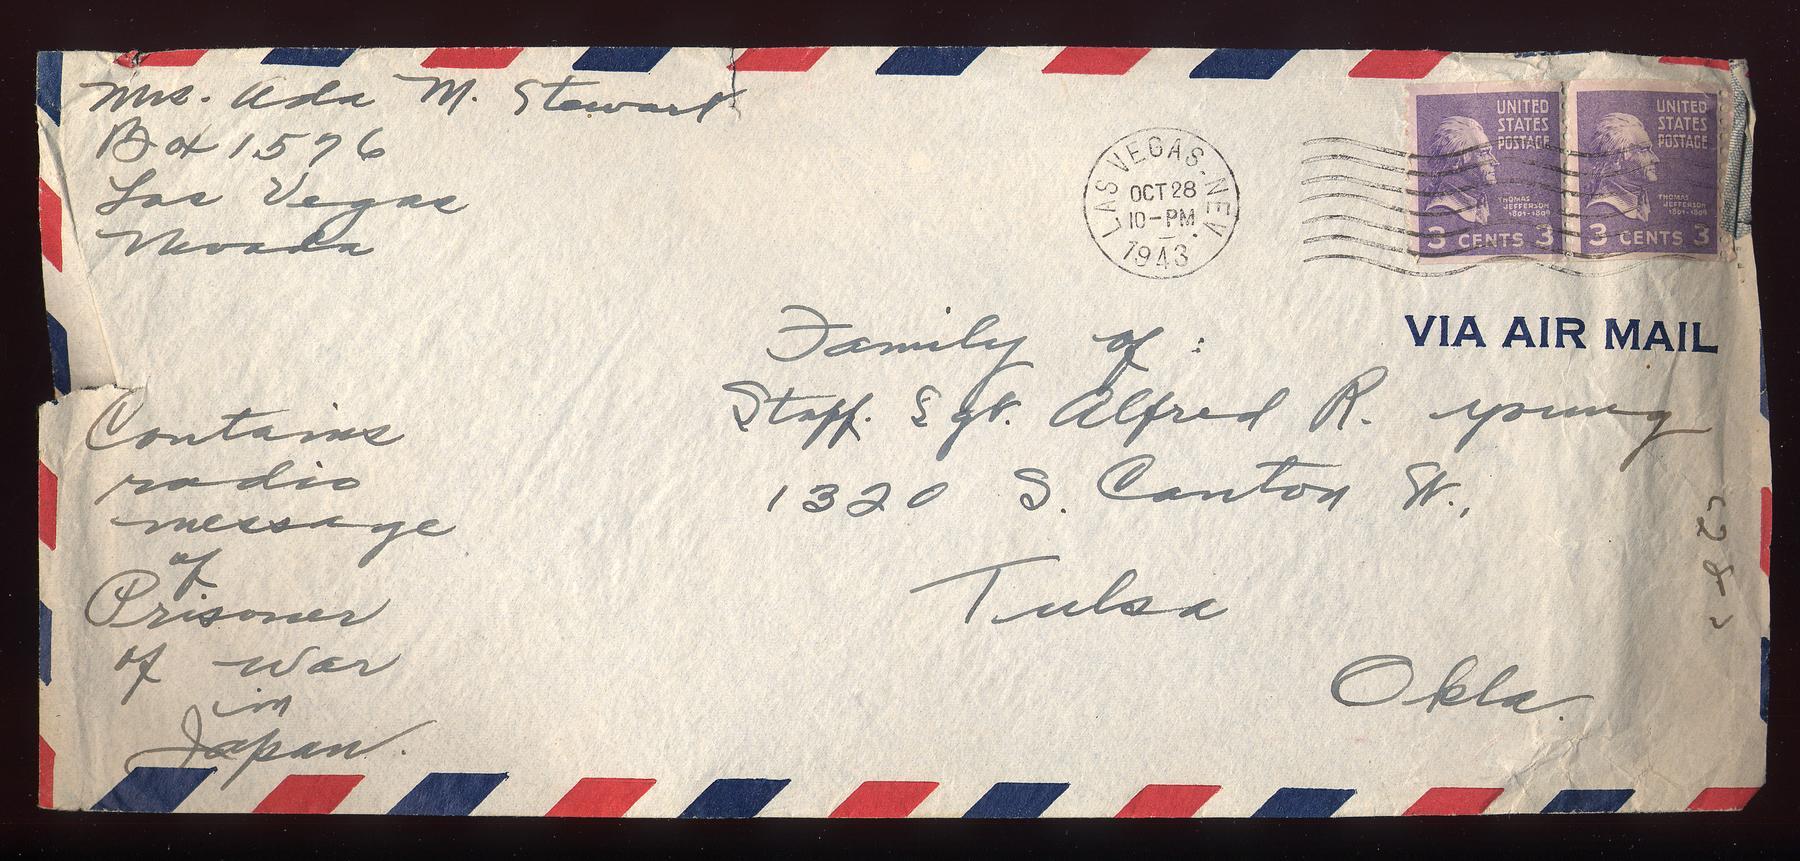 Mrs. Ada M. Stewart
Box 1576
Las Vegas
Nevada
LAS VEGAS. NEV.
OCT 28
10-PM
1943
UNITED
STATES
POSTAGE
THOMAS
JEFFERSON
1801-1809
3 CENTS 3
UNITED
STATES
POSTAGE
THOMAS
JEFFERSON
1801-1809
3 CENTS 3
VIA AIR MAIL
Family of :
Staff. Sgt. Alfred R. Young
1320 S. Canton St.,
Tulsa
Okla.
Contains
radio
message
of
Prisoner
of war
in
Japan.